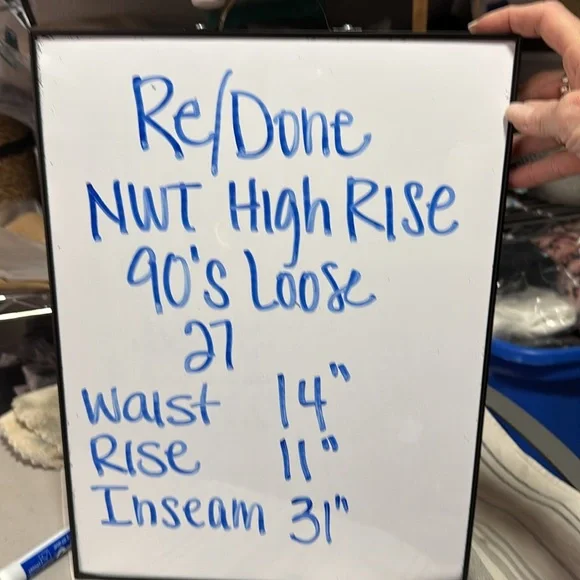 Re/Done
NWT High Rise
90's Loose
27
Waist 14"
Rise 11"
Inseam 31"